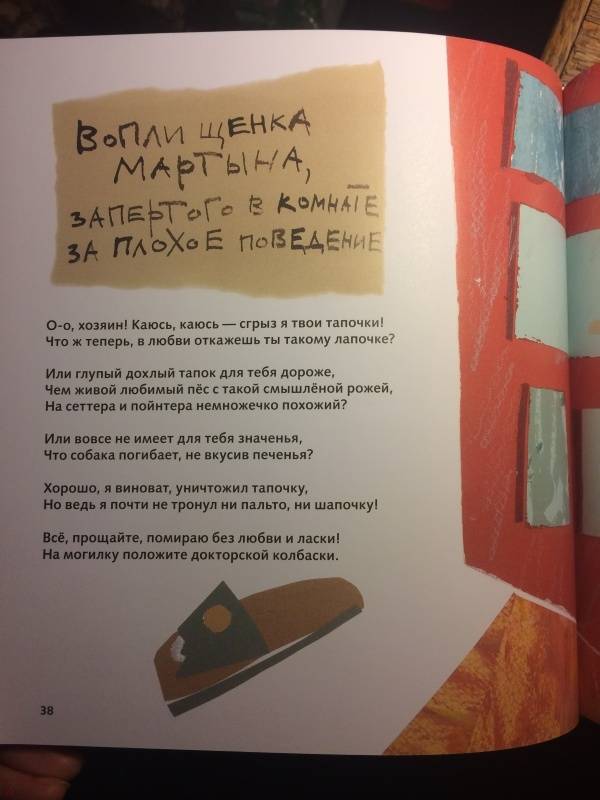 ВОПЛИ ЩЕНКА
МАРТЫНА,
ЗАПЕРТОГО В КОМНАТЕ
ЗА ПЛОХОЕ ПОВЕДЕНИЕ
О-о, хозяин! Каюсь, каюсь — сгрыз я твои тапочки!
Что ж теперь, в любви откажешь ты такому лапочке?
Или глупый дохлый тапок для тебя дороже,
Чем живой любимый пёс с такой смышлёной рожей,
На сеттера и пойнтера немножечко похожий?
Или вовсе не имеет для тебя значенья,
Что собака погибает, не вкусив печенья?
Хорошо, я виноват, уничтожил тапочку,
Но ведь я почти не тронул ни пальто, ни шапочку!
Всё, прощайте, помираю без любви и ласки!
На могилку положите докторской колбаски.
38